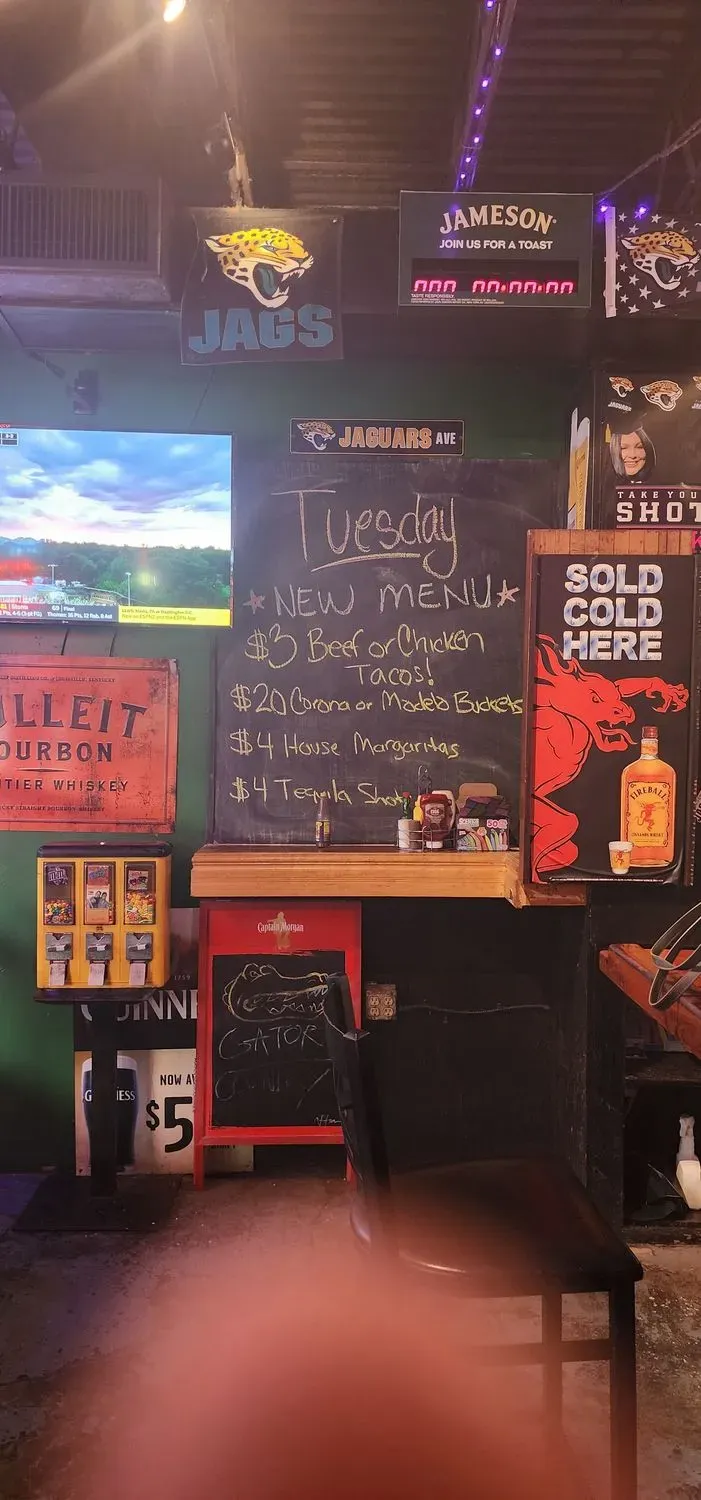 JAMESON
JOIN US FOR A TOAST
000 00:00:00
TASTE RESPONSIBLY.
JAGS
JAGUARS AVE
JAGUARS
TAKE YOU
SHOT
Tuesday
NEW MENU
$3 Beef or Chicken
Tacos!
$20 Corona or Modelo Buckets
$4 House Margaritas
$4 Tequila Shot
SOLD
COLD
HERE
FIREBALL
ULLEIT
OURBON
TIER WHISKEY
Captain Morgan
GATOR
COUNTRY
1759
UINNE
NOW AV
$5